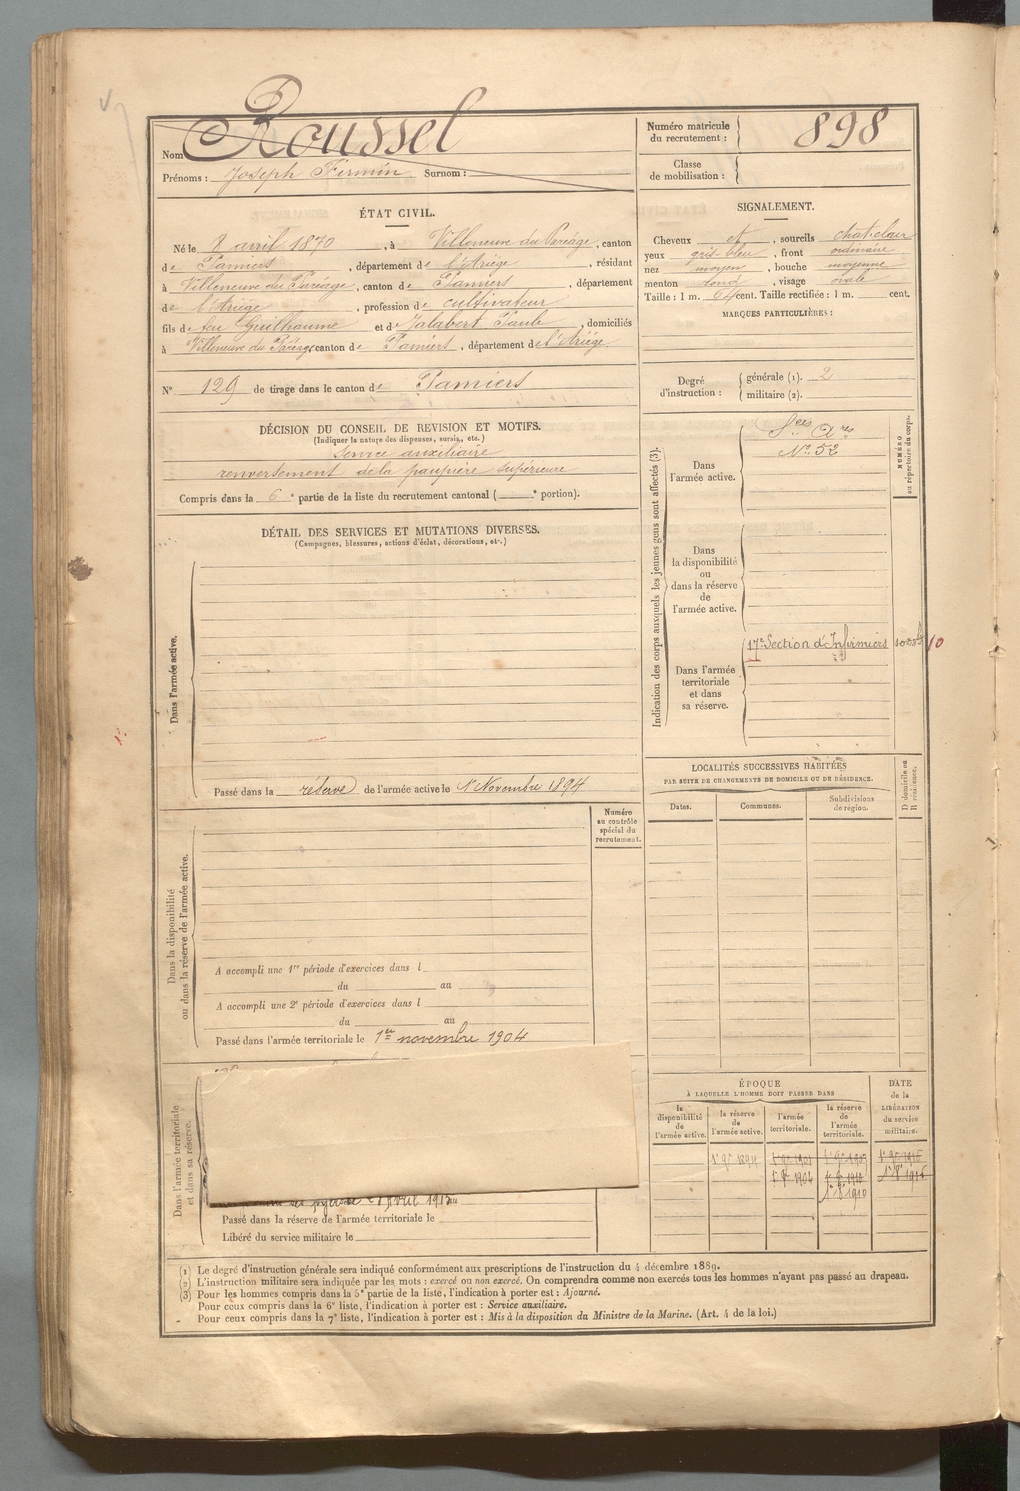 Nom Roussel
Prénoms : Joseph Firmin Surnom :
Numéro matricule du recrutement : 898
Classe de mobilisation :
ÉTAT CIVIL.
Né le 8 avril 1870, à Villeneuve du Paréage, canton
de Pamiers, département de l'Ariège, résidant
à Villeneuve du Paréage, canton de Pamiers, département
de l'Ariège, profession de cultivateur
fils de feu Guilhaume et de Jalabert Paule, domiciliés
à Villeneuve du Paréage, canton de Pamiers, département de l'Ariège.
SIGNALEMENT.
Cheveux et, sourcils chat. clair
yeux gris-bleu, front ordinaire
nez moyen, bouche moyenne
menton rond, visage ovale
Taille : 1 m. cent. Taille rectifiée : 1 m. cent.
MARQUES PARTICULIÈRES :
N° 129 de tirage dans le canton de Pamiers
Degré d'instruction : générale (1). 2
militaire (2).
DÉCISION DU CONSEIL DE REVISION ET MOTIFS.
(Indiquer la nature des dispenses, sursis, etc.)
Service auxiliaire
renversement de la paupière supérieure
Compris dans la 6e partie de la liste du recrutement cantonal ( e portion).
Indication des corps auxquels les jeunes gens sont affectés (3).
NUMÉRO au répertoire du corps.
Dans l'armée active.
Sces Ares
N° 52
Dans la disponibilité ou dans la réserve de l'armée active.
Dans l'armée territoriale et dans sa réserve.
17e Section d'Infirmiers
10
DÉTAIL DES SERVICES ET MUTATIONS DIVERSES.
(Campagnes, blessures, actions d'éclat, décorations, etc.)
Dans l'armée active.
Passé dans la réserve de l'armée active le 1er Novembre 1894
LOCALITÉS SUCCESSIVES HABITÉES
PAR SUITE DE CHANGEMENTS DE DOMICILE OU DE RÉSIDENCE.
D domicile ou R résidence.
Dates. Communes. Subdivisions de région.
Numéro au contrôle spécial du recrutement.
Dans la disponibilité ou dans la réserve de l'armée active.
A accompli une 1re période d'exercices dans l
du au
A accompli une 2e période d'exercices dans l
du au
Passé dans l'armée territoriale le 1er novembre 1904
Dans l'armée territoriale et dans sa réserve.
Avril 1913
Passé dans la réserve de l'armée territoriale le
Libéré du service militaire le
ÉPOQUE
À LAQUELLE L'HOMME DOIT PASSER DANS
la disponibilité de l'armée active.
la réserve de l'armée active.
l'armée territoriale.
la réserve de l'armée territoriale.
DATE de la LIBÉRATION du service militaire.
(1) Le degré d'instruction générale sera indiqué conformément aux prescriptions de l'instruction du 4 décembre 1889.
(2) L'instruction militaire sera indiquée par les mots : exercé ou non exercé. On comprendra comme non exercés tous les hommes n'ayant pas passé au drapeau.
(3) Pour les hommes compris dans la 5e partie de la liste, l'indication à porter est : Ajourné.
Pour ceux compris dans la 6e liste, l'indication à porter est : Service auxiliaire.
Pour ceux compris dans la 7e liste, l'indication à porter est : Mis à la disposition du Ministre de la Marine. (Art. 4 de la loi.)